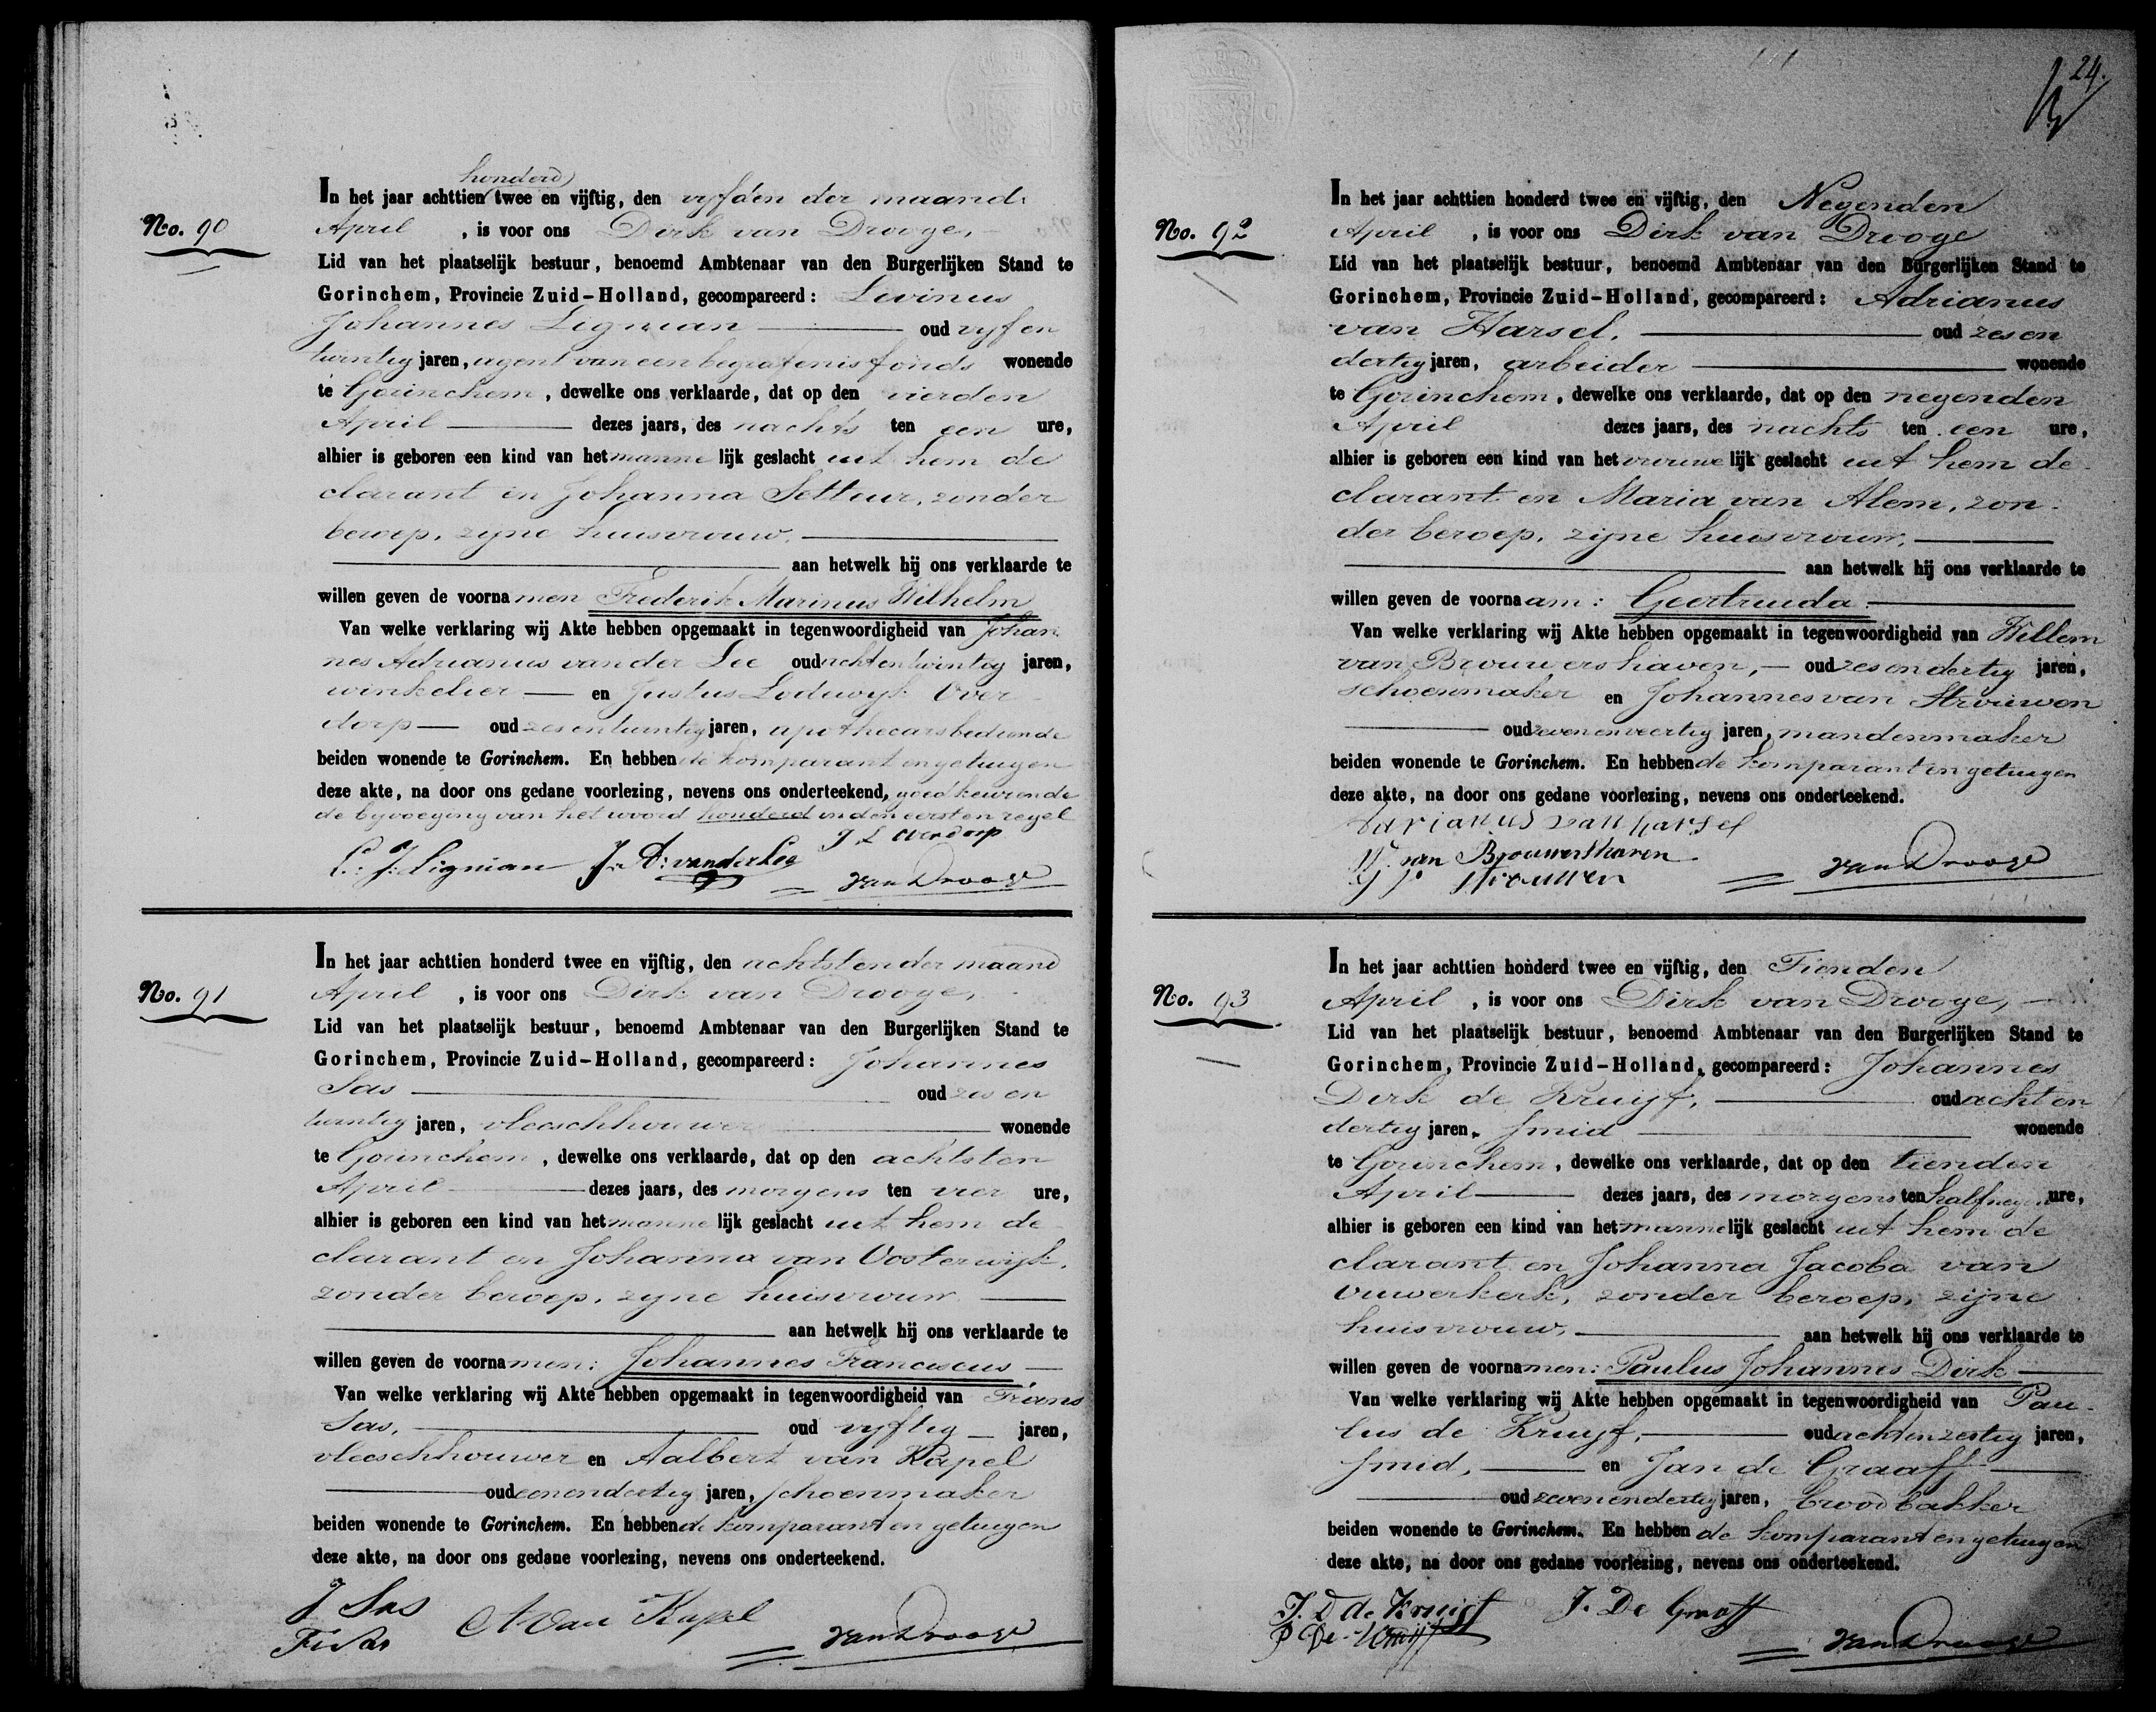 honderd
In het jaar achttien twee en vijftig, den vyfden der maand
No. 90
April , is voor ons Dirk van Drooge,
Lid van het plaatselijk bestuur, benoemd Ambtenaar van den Burgerlijken Stand te
Gorinchem, Provincie Zuid-Holland, gecompareerd: Levinus
Johannes Ligman oud vyf en
twintig jaren, agent van een begrafenisfonds wonende
te Gorinchem, dewelke ons verklaarde, dat op den vierden
April dezes jaars, des nachts ten een ure,
alhier is geboren een kind van het mannelijk geslacht uit hem de
clarant en Johanna Setteur, zonder
beroep, zyne huisvrouw,
aan hetwelk hij ons verklaarde te
willen geven de voornamen Frederik Marinus Wilhelm
Van welke verklaring wij Akte hebben opgemaakt in tegenwoordigheid van Johan
nes Adrianus van der Lee oud achtentwintig jaren,
winkelier en Justus Lodewyk Over
dorp oud zesentwintig jaren, apothecarsbediende
beiden wonende te Gorinchem. En hebben de komparant en getuigen
deze akte, na door ons gedane voorlezing, nevens ons onderteekend, goedkeurende
de byvoeging van het woord honderd in den eersten regel
J L Overdorp
L: J: Ligman J. A: van der Lee
van Drooge
In het jaar achttien honderd twee en vijftig, den achtsten der maand
No. 91
April , is voor ons Dirk van Drooge,
Lid van het plaatselijk bestuur, benoemd Ambtenaar van den Burgerlijken Stand te
Gorinchem, Provincie Zuid-Holland, gecompareerd: Johannes
Sas oud zes en
twintig jaren, vleeschhouwer wonende
te Gorinchem, dewelke ons verklaarde, dat op den achtsten
April dezes jaars, des morgens ten vier ure,
alhier is geboren een kind van het mannelijk geslacht uit hem de
clarant en Johanna van Oosterwijk,
zonder beroep, zyne huisvrouw
aan hetwelk hij ons verklaarde te
willen geven de voornamen: Johannes Franciscus
Van welke verklaring wij Akte hebben opgemaakt in tegenwoordigheid van Frans
Sas, oud vyftig jaren,
vleeschhouwer en Aalbert van Kapel
oud eenendertig jaren, schoenmaker
beiden wonende te Gorinchem. En hebben de komparant en getuigen
deze akte, na door ons gedane voorlezing, nevens ons onderteekend.
J Sas
A van Kapel
F: Sas
van Drooge
24.
In het jaar achttien honderd twee en vijftig, den Negenden
No. 92
April , is voor ons Dirk van Drooge
Lid van het plaatselijk bestuur, benoemd Ambtenaar van den Burgerlijken Stand te
Gorinchem, Provincie Zuid-Holland, gecompareerd: Adrianus
van Harsel, oud zes en
dertig jaren, arbeider wonende
te Gorinchem, dewelke ons verklaarde, dat op den negenden
April dezes jaars, des nachts ten een ure,
alhier is geboren een kind van het vrouwelijk geslacht uit hem de-
clarant en Maria van Alem, zon-
der beroep, zijne huisvrouw,
aan hetwelk hij ons verklaarde te
willen geven de voornaam: Geertruida
Van welke verklaring wij Akte hebben opgemaakt in tegenwoordigheid van Willem
van Brouwershaven, oud zesendertig jaren,
schoenmaker en Johannes van Strouwen
oud zevenenveertig jaren, mandenmaker
beiden wonende te Gorinchem. En hebben de komparant en getuigen
deze akte, na door ons gedane voorlezing, nevens ons onderteekend.
adrianus van harsel
W. van Brouwershaven
van Drooge
Strouwen
In het jaar achttien honderd twee en vijftig, den Tienden
No. 93
April , is voor ons Dirk van Drooge,
Lid van het plaatselijk bestuur, benoemd Ambtenaar van den Burgerlijken Stand te
Gorinchem, Provincie Zuid-Holland, gecompareerd: Johannes
Dirk de Kruijf, oud acht en
dertig jaren, smid wonende
te Gorinchem, dewelke ons verklaarde, dat op den tienden
April dezes jaars, des morgens ten half negen ure,
alhier is geboren een kind van het mannelijk geslacht uit hem de
clarant en Johanna Jacoba van
Ouwerkerk, zonder beroep, zijne
huisvrouw, aan hetwelk hij ons verklaarde te
willen geven de voornamen: Paulus Johannes Dirk
Van welke verklaring wij Akte hebben opgemaakt in tegenwoordigheid van Pau-
lus de Kruyf, oud achtenzestig jaren,
smid, en Jan de Graaff
oud zevenendertig jaren, broodbakker
beiden wonende te Gorinchem. En hebben de komparant en getuigen
deze akte, na door ons gedane voorlezing, nevens ons onderteekend.
J. D de Kruijf J. De Graaff
P De Kruijff
van Drooge